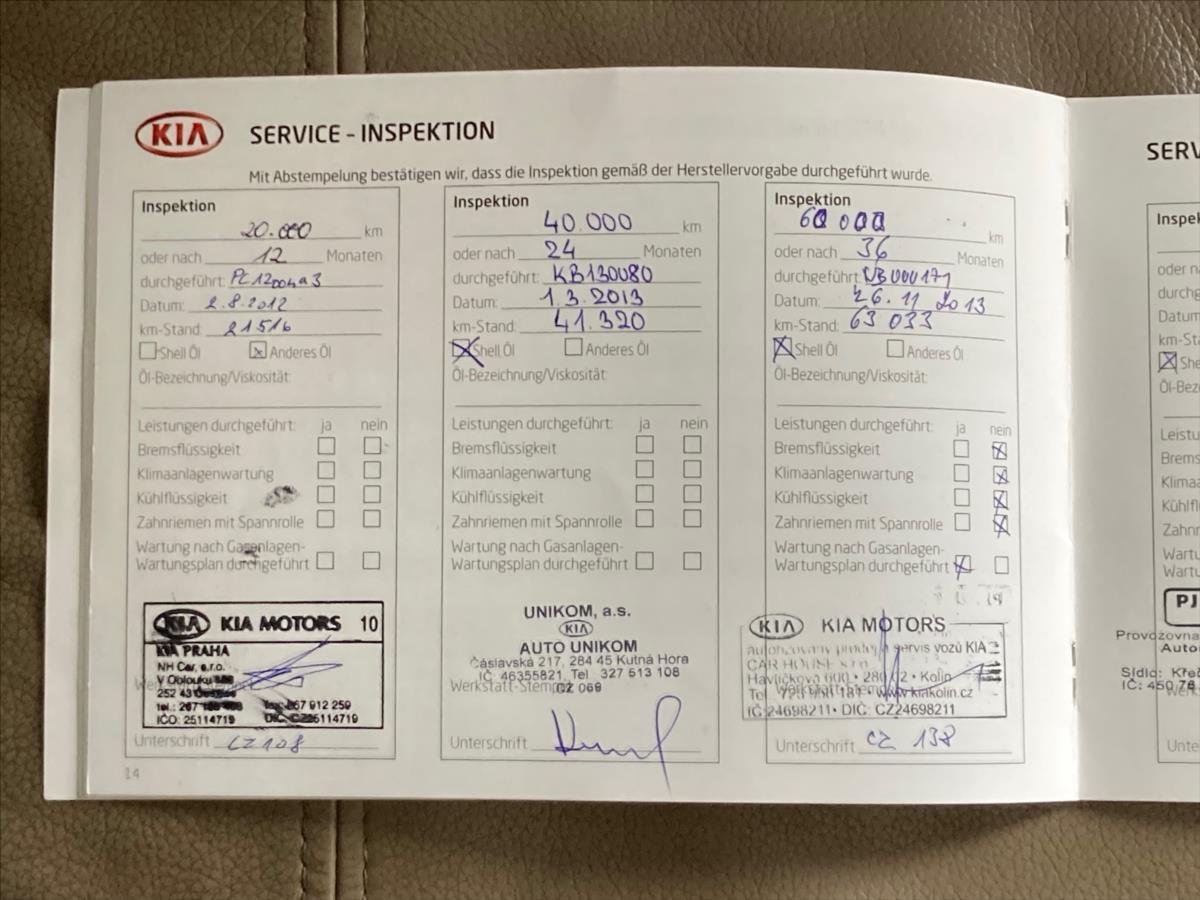 KIA SERVICE - INSPEKTION
Mit Abstempelung bestätigen wir, dass die Inspektion gemäß der Herstellervorgabe durchgeführt wurde.
Inspektion
20.000 km
oder nach 12 Monaten
durchgeführt:
Datum: 2.8.2012
km-Stand: 21516
Shell Öl Anderes Öl
Öl-Bezeichnung/Viskosität:
Leistungen durchgeführt: ja nein
Bremsflüssigkeit
Klimaanlagenwartung
Kühlflüssigkeit
Zahnriemen mit Spannrolle
Wartung nach Gasanlagen-
Wartungsplan durchgeführt
KIA KIA MOTORS 10
KIA PRAHA
NH Car, s.r.o.
V Oblouku
252 43
tel.: 267 912 259
IČO: 25114719 DIČ: CZ25114719
Unterschrift CZ108
14
Inspektion
40.000 km
oder nach 24 Monaten
durchgeführt: KB130080
Datum: 1.3.2013
km-Stand: 41.320
Shell Öl Anderes Öl
Öl-Bezeichnung/Viskosität:
Leistungen durchgeführt: ja nein
Bremsflüssigkeit
Klimaanlagenwartung
Kühlflüssigkeit
Zahnriemen mit Spannrolle
Wartung nach Gasanlagen-
Wartungsplan durchgeführt
UNIKOM, a.s.
KIA
AUTO UNIKOM
Čáslavská 217, 284 45 Kutná Hora
IČ 46355821, Tel 327 513 108
Werkstatt-Stempel CZ 069
Unterschrift
Inspektion
60 000 km
oder nach 36 Monaten
durchgeführt: NB000171
Datum: 26.11 2013
km-Stand: 63 033
Shell Öl Anderes Öl
Öl-Bezeichnung/Viskosität:
Leistungen durchgeführt: ja nein
Bremsflüssigkeit
Klimaanlagenwartung
Kühlflüssigkeit
Zahnriemen mit Spannrolle
Wartung nach Gasanlagen-
Wartungsplan durchgeführt
KIA KIA MOTORS
autorizovaný prodej a servis vozů KIA
CAR HOUSE s.r.o.
Havlíčkova 600 • 280 02 • Kolín
www.kiakolin.cz
IČ 24698211 • DIČ: CZ24698211
Unterschrift CZ 138
SERV
Inspek
oder n
durchg
Datum
km-St
She
Öl-Bez
Leistu
Brems
Klima
Kühlf
Zahn
Wartu
Wartu
PJ
Provozovna
Auto
Sídlo: Kře
IČ: 450 76
Unte